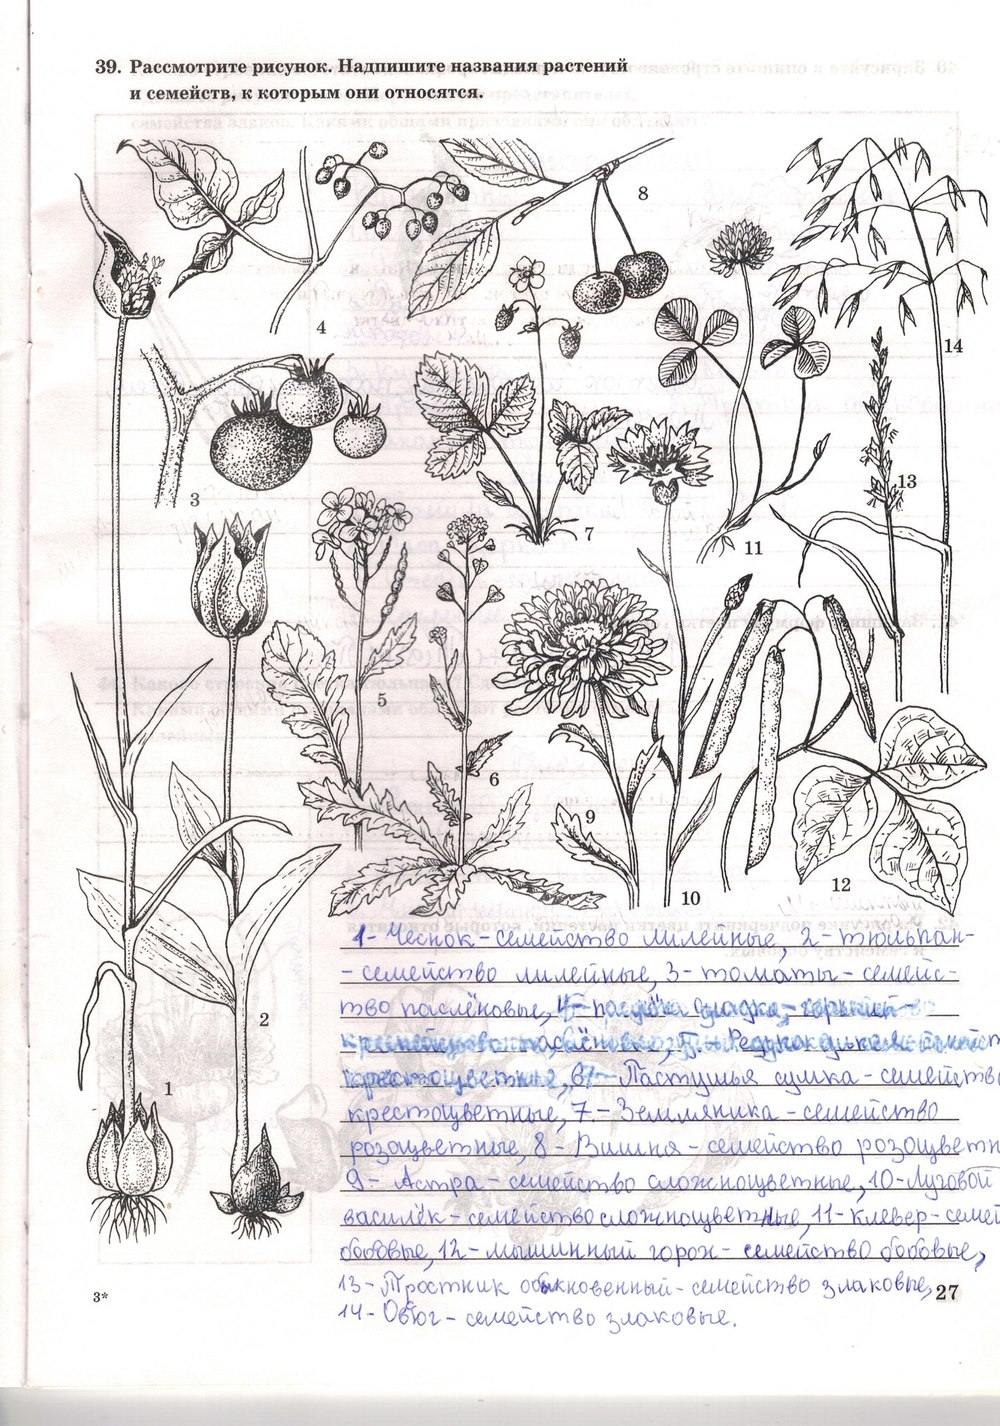 39. Рассмотрите рисунок. Надпишите названия растений
и семейств, к которым они относятся.
8
4
14
3
13
7
11
5
6
9
12
10
2
1
1- Чеснок - семейство лилейные, 2- тюльпан-
- семейство лилейные, 3- томаты - семейс-
тво паслёновые, 4-
паслёновые, 5 - Редька дикая
крестоцветные, 6 - Пастушья сумка - семейство
крестоцветные, 7.- Земляника - семейство
розоцветные, 8 - Вишня - семейство розоцветн
9- Астра - семейство сложноцветные, 10- Луговой
василёк - семейство сложноцветные, 11- клевер - семей
бобовые, 12 - мышинный горох - семейство бобовые,
13- Тростник обыкновенный - семейство злаковые,
14- Овёс - семейство злаковые.
3*
27